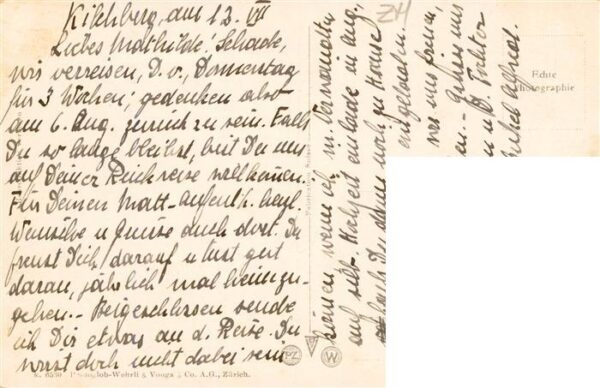 Kilchberg, am 12. VII
Liebes Mathilde! Schade,
wir verreisen, D. v., Donnerstag
für 3 Wochen; gedenken also
am 6. Aug. zurück zu sein. Falls
Du so lange bleibst, bist Du uns
auf Deiner Rückreise willkommen.
Für Deinen Matt-Aufenth. herzl.
Wünsche u. Grüsse auch dort. Du
freust Dich darauf u. tust gut
daran, jährlich mal heimzu-
gehen. - Beigeschlossen sende
ich Dir etwas an d. Reise. Du
wirst doch nicht dabei sein
können, wenn ich, in. Verwandte
auf silb. Hochzeit einlade im Aug.,
auch Du schon noch zu Hause
eingeladen.
was uns freuen,
Grüsse uns
Tochter
Alfred.
ZH
Echte
Photographie
Photoglob-Wehrli & Vouga & Co. A.G., Zürich.
PZ
W